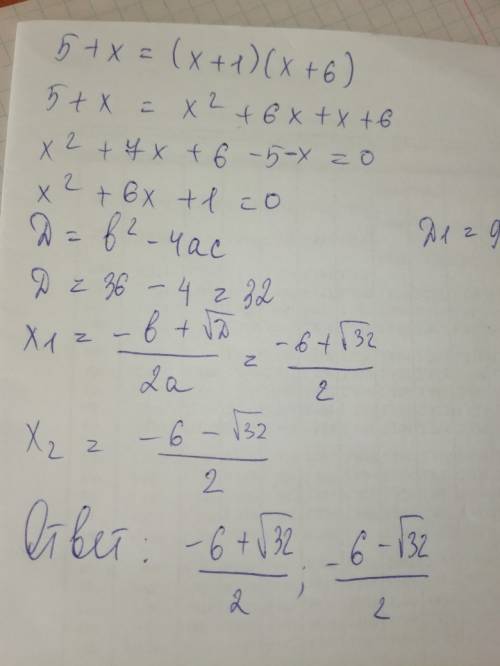 5 + x = (x+1)(x+6)
5 + x = x² + 6x + x + 6
x² + 7x + 6 - 5 - x = 0
x² + 6x + 1 = 0
Д = в² - 4ас
Д1 = 9
Д = 36 - 4 = 32
x1 = (-в + √Д)/2а = (-6 + √32)/2
x2 = (-6 - √32)/2
Ответ: (-6 + √32)/2 ; (-6 - √32)/2